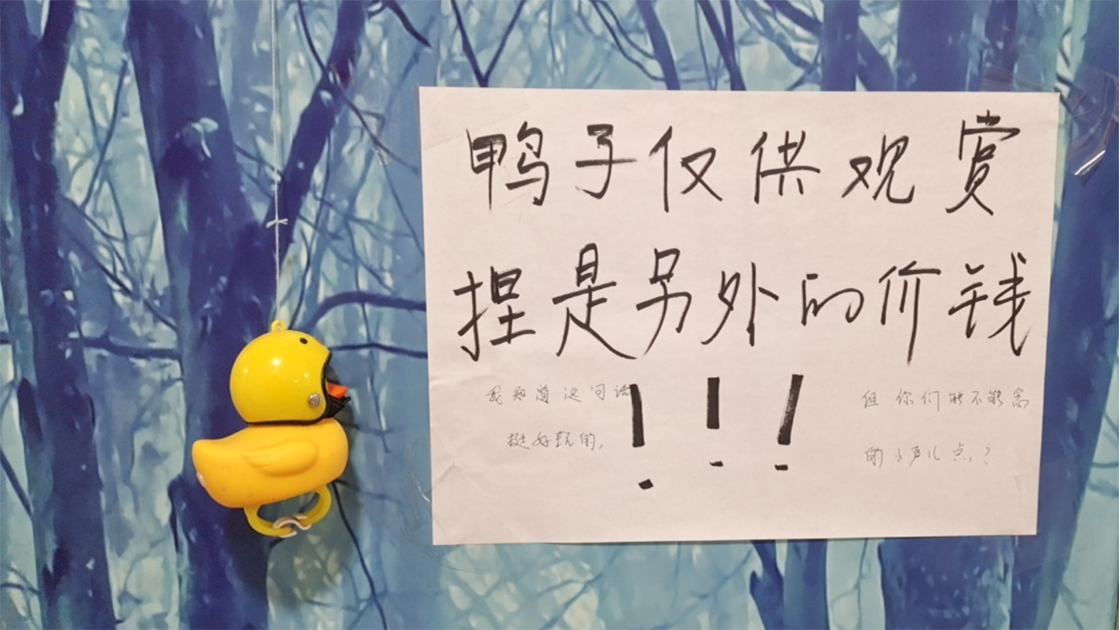 鸭子仅供观赏
捏是另外的价钱
！！！
我知道这句话
挺好玩的，
但你们能不能念
的小声儿点，？